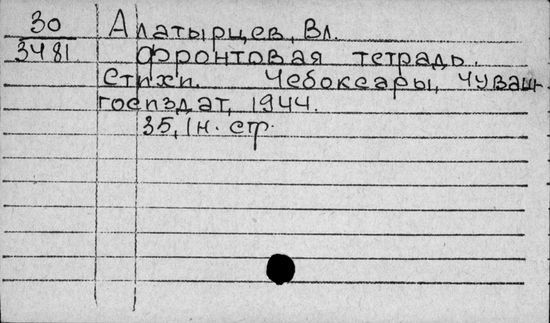 30
3481
Алатырцев, Вл.
Фронтовая тетрадь.
Стихи. Чебоксары, Чуваш-
госиздат, 1944.
35, 1 н. стр.